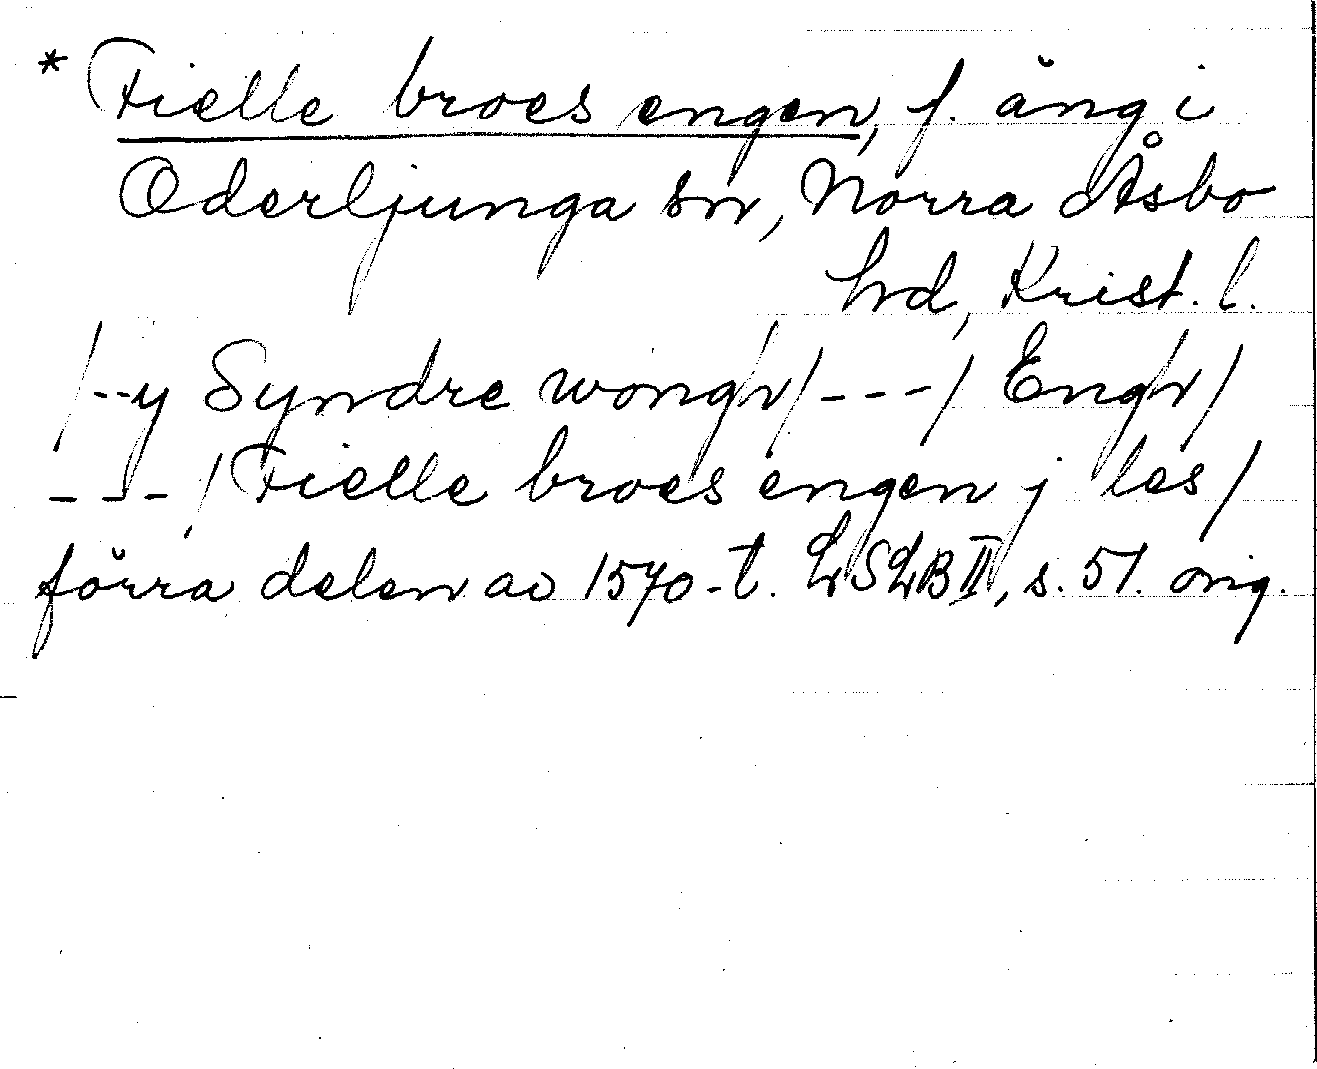 * Fielle broes engen, f. äng i
Oderljunga sn, Norra Åsbo
hd, Krist. l.
/--y Syndre wongh/---/ Engh/
---/ Fielle broes engen j les/
förra delen av 1570-t. LSLB II, s. 51. orig.